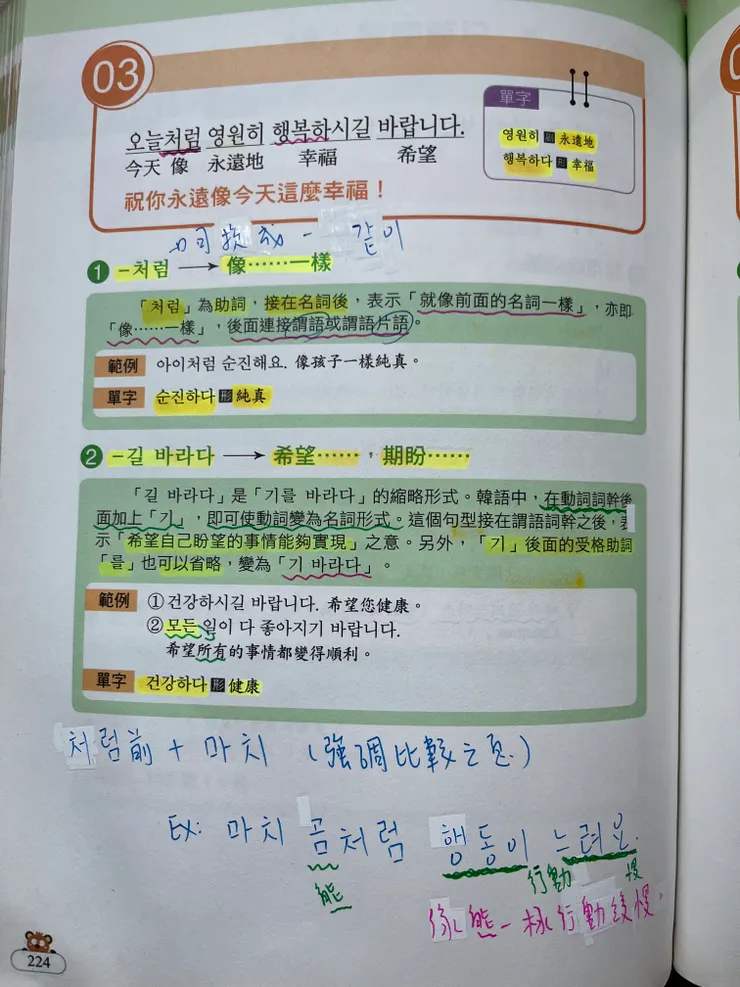 03
單字
오늘처럼 영원히 행복하시길 바랍니다.
今天 像 永遠地 幸福 希望
祝你永遠像今天這麼幸福！
영원히 副 永遠地
행복하다 形 幸福
可換成- 같이
1 -처럼 → 像……一樣
「처럼」為助詞，接在名詞後，表示「就像前面的名詞一樣」，亦即
「像……一樣」，後面連接謂語或謂語片語。
範例 아이처럼 순진해요. 像孩子一樣純真。
單字 순진하다 形 純真
2 -길 바라다 → 希望……，期盼……
「길 바라다」是「기를 바라다」的縮略形式。韓語中，在動詞詞幹後
面加上「기」，即可使動詞變為名詞形式。這個句型接在謂語詞幹之後，表
示「希望自己盼望的事情能夠實現」之意。另外，「기」後面的受格助詞
「를」也可以省略，變為「기 바라다」。
範例 ①건강하시길 바랍니다. 希望您健康。
②모든 일이 다 좋아지기 바랍니다.
希望所有的事情都變得順利。
單字 건강하다 形 健康
처럼前 + 마치 (強調比較之意)
Ex: 마치 곰처럼 행동이 느려요.
熊 行動 慢
像熊一樣行動緩慢。
224